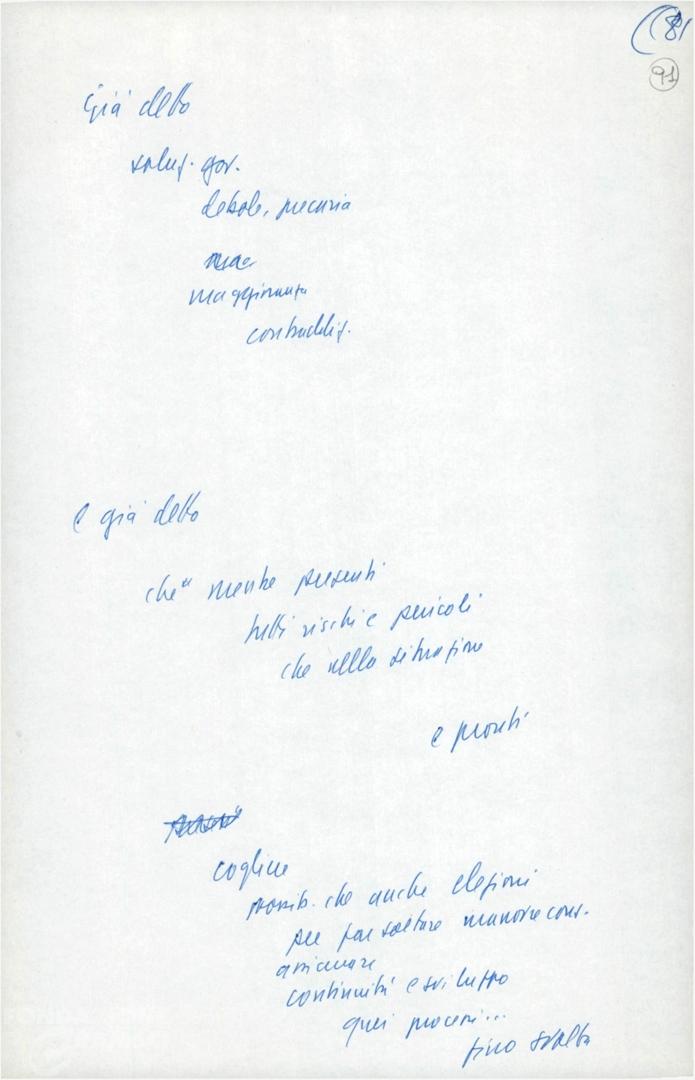 (81
91
già detto
soluz. gov.
debole, precaria
maggioranza
contraddiz.
e già detto
che mente presenti
tutti rischi e pericoli
che nella situazione
e pronti
cogliere
possib. che anche elezioni
per far saltare manovre cons.
assicurare
continuità e sviluppo
quei processi...
fino svolta